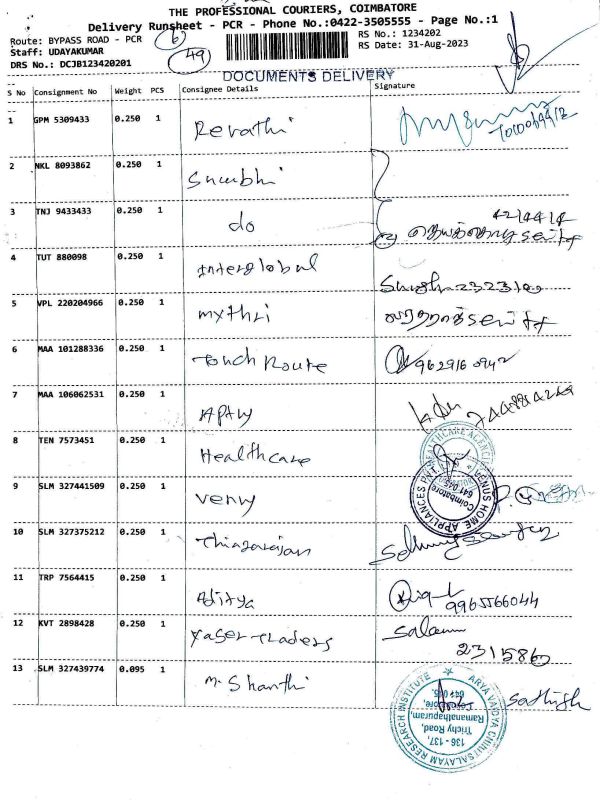 THE PROFESSIONAL COURIERS, COIMBATORE
Delivery Runsheet - PCR - Phone No.:0422-3505555 - Page No.:1
Route: BYPASS ROAD - PCR
Staff: UDAYAKUMAR
DRS No.: DCJB123420201
6
49
RS No.: 1234202
RS Date: 31-Aug-2023
DOCUMENTS DELIVERY
S No Consignment No Weight PCS Consignee Details Signature
1 GPM 5309433 0.250 1 Revathi
2 NKL 8093862 0.250 1 Surabhi
3 TNJ 9433433 0.250 1 do
4 TUT 880098 0.250 1 Interglobal
5 VPL 220204966 0.250 1 mythri
6 MAA 101288336 0.250 1 Touch Route
7 MAA 106062531 0.250 1 Aptly
8 TEN 7573451 0.250 1 Healthcare
9 SLM 327441509 0.250 1
VENUS HOME APPLIANCES PVT. LTD.
Coimbatore
641 045
10 SLM 327375212 0.250 1 Thiagarajan
11 TRP 7564415 0.250 1 Aditya 9965566044
12 KVT 2898428 0.250 1 Yaser Traders Salam
2315860
13 SLM 327439774 0.095 1 M. Shanthi Sathish
ARYA VAIDYA CHIKITSALAYAM RESEARCH INSTITUTE
136 - 137,
Trichy Road,
Ramanathapuram,